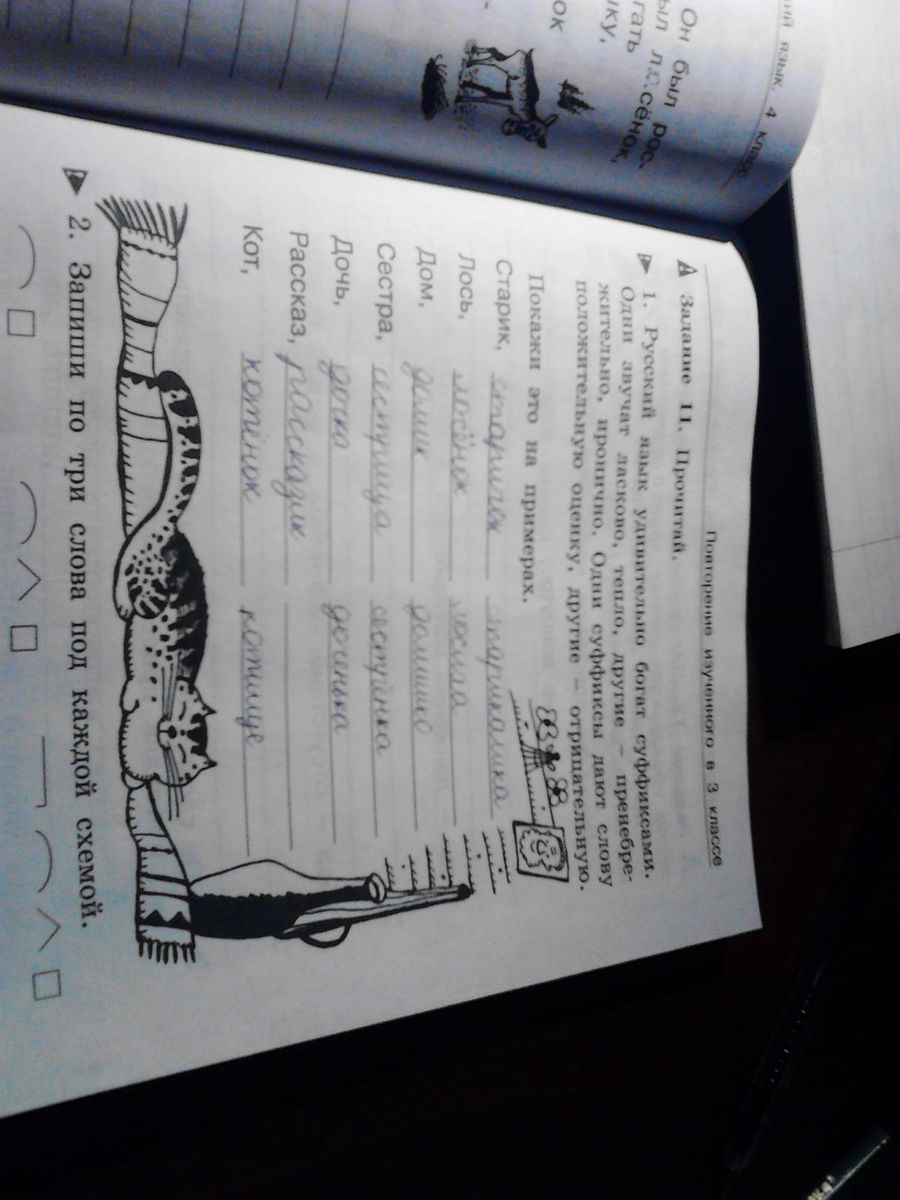 ий язык. 4 класс
Он был рос-
ыл л.о.сёнок,
гать
ку,
ок
Повторение изученного в 3 классе
Задание 11. Прочитай.
1. Русский язык удивительно богат суффиксами.
Одни звучат ласково, тепло, другие – пренебре-
жительно, иронично. Одни суффиксы дают слову
положительную оценку, другие – отрицательную.
Покажи это на примерах.
Старик, старичок старикашка
Лось, лосёнок
Дом, домик домишко
Сестра, сестрица сестрёнка
Дочь, дочка доченька
Рассказ, рассказик
Кот, котёнок котище
2. Запиши по три слова под каждой схемой.